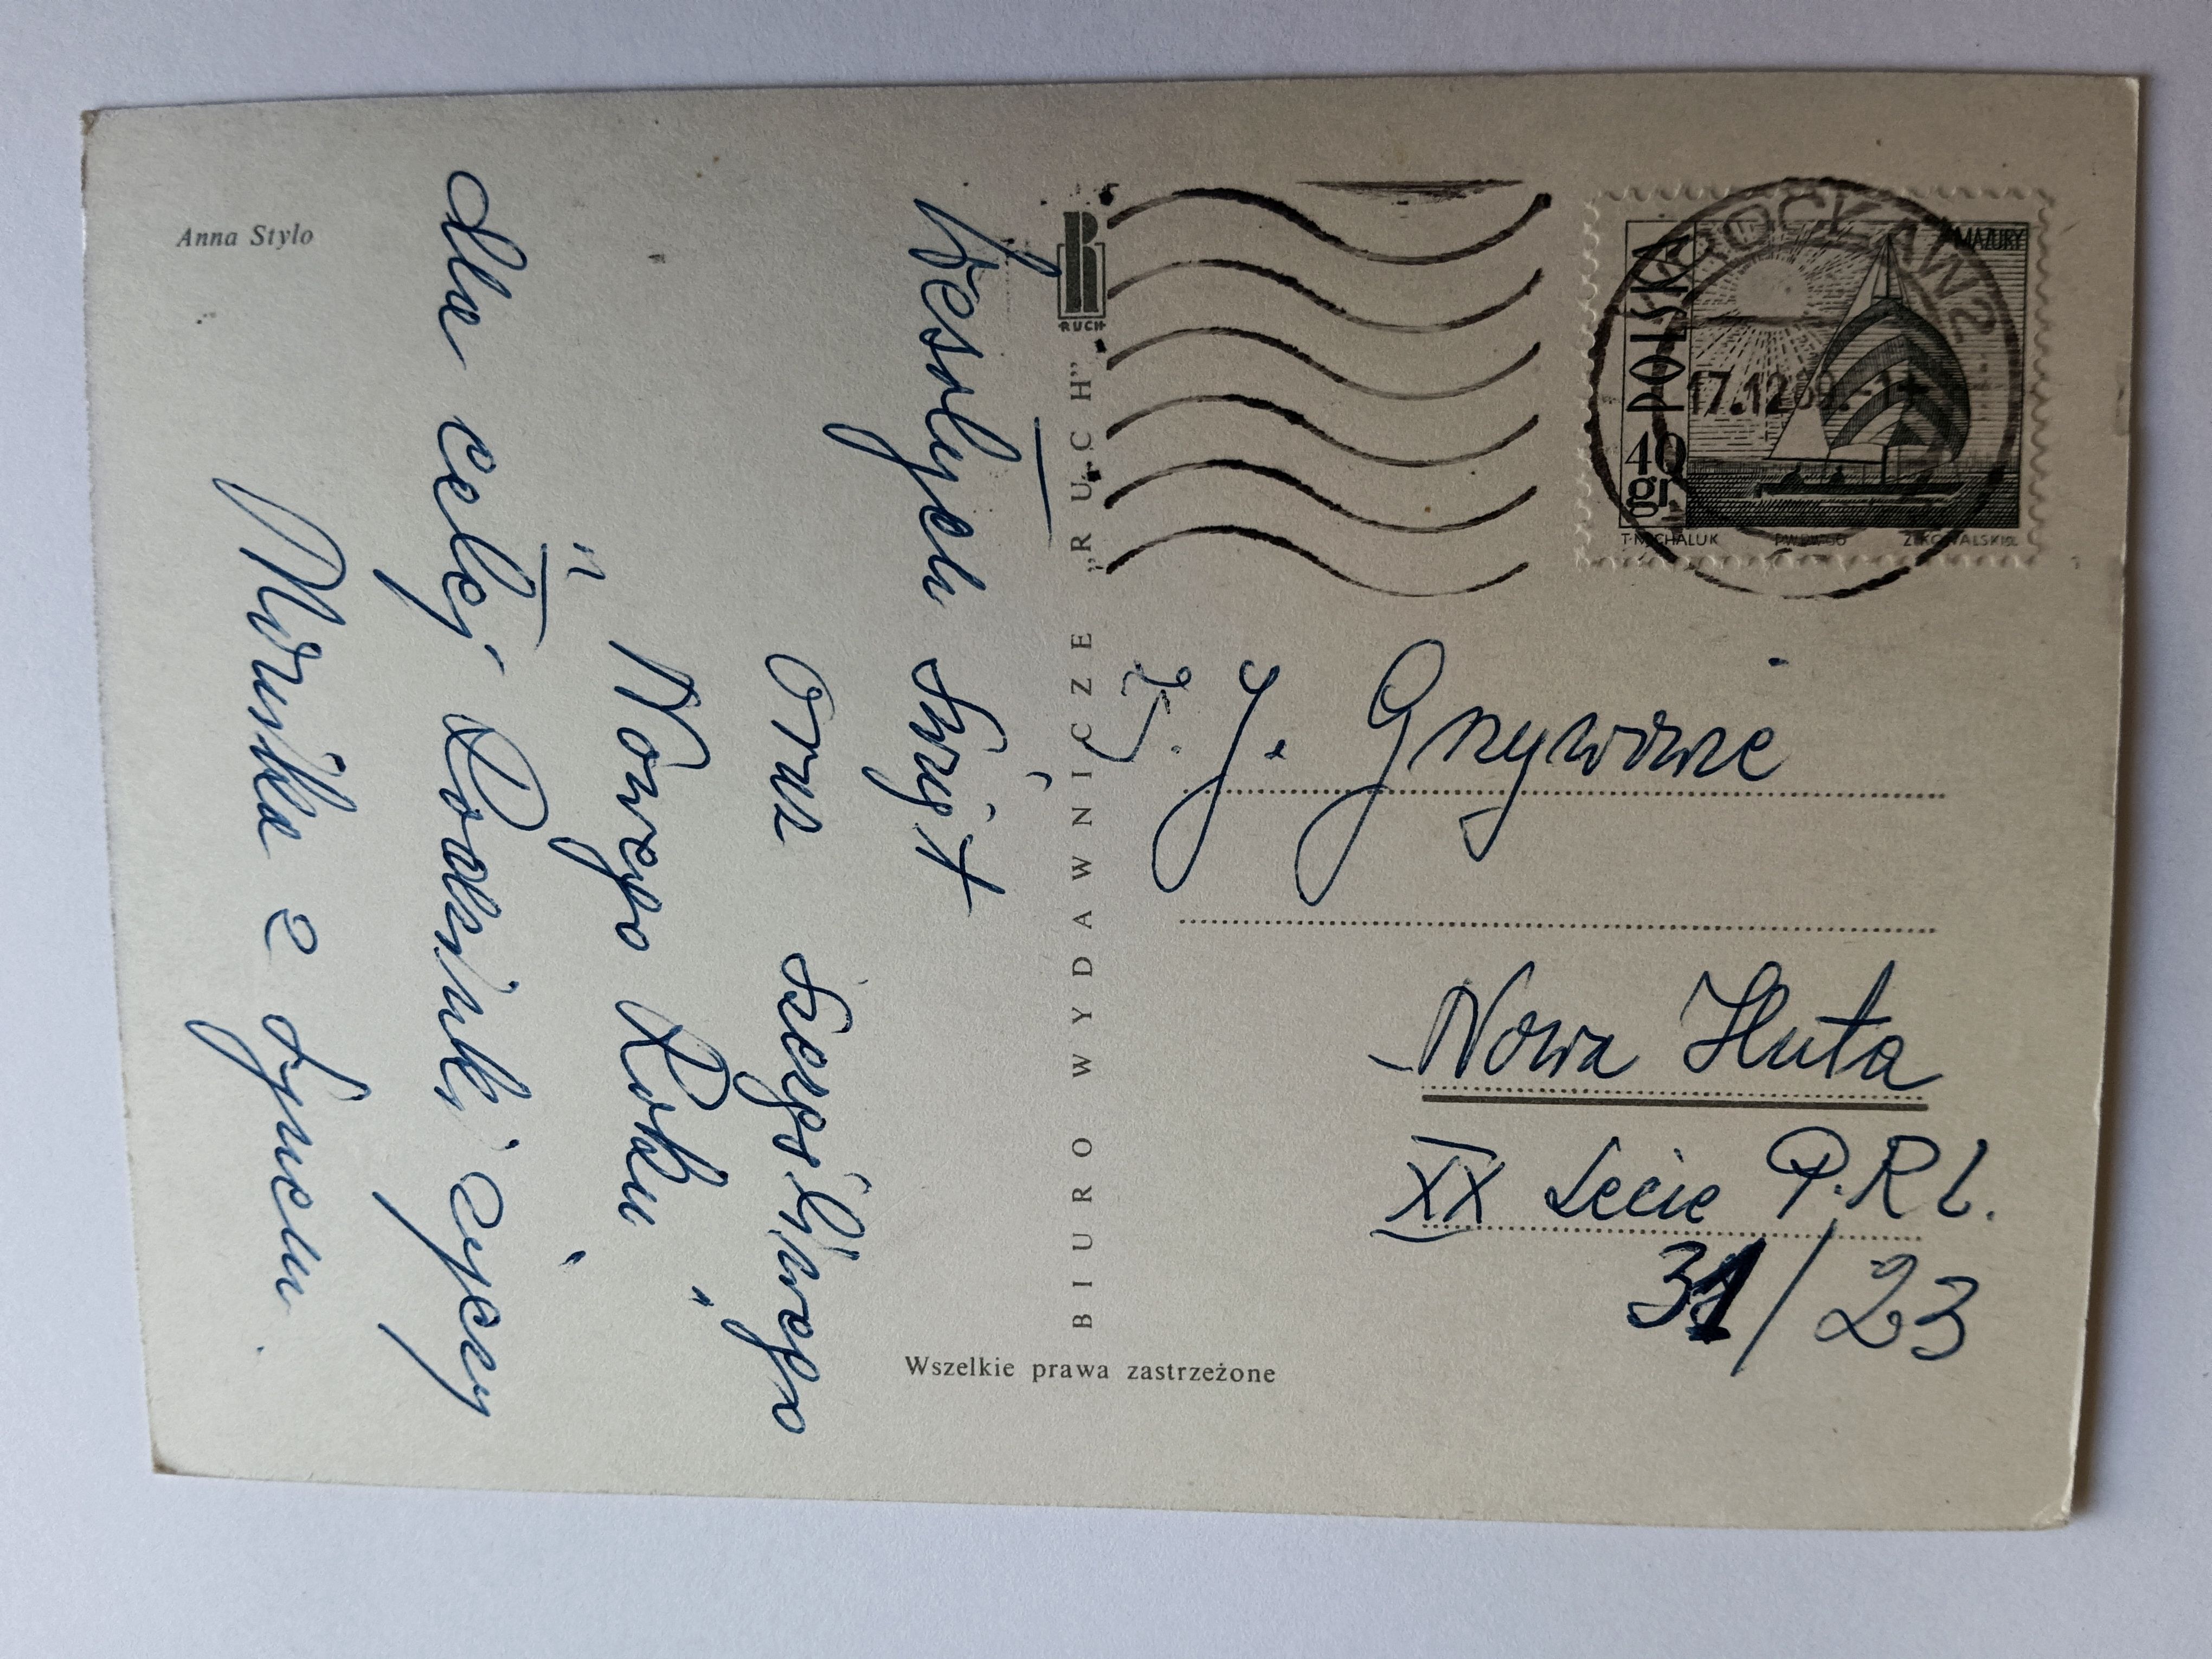 Anna Stylo
Wesołych Świąt
oraz szczęśliwego
"Nowego Roku"
dla całej Rodzinki życzy
z Synem.
RUCH
BIURO WYDAWNICZE „RUCH”
Wszelkie prawa zastrzeżone
POLSKA
40 gr
MAZURY
T. MICHALUK
P.W.P.W. 66
Z. KOWALSKI sc.
WROCŁAW 2
17.12.69
J. J. Grzywowie
Nowa Huta
XX Lecie P.R.L.
31/23